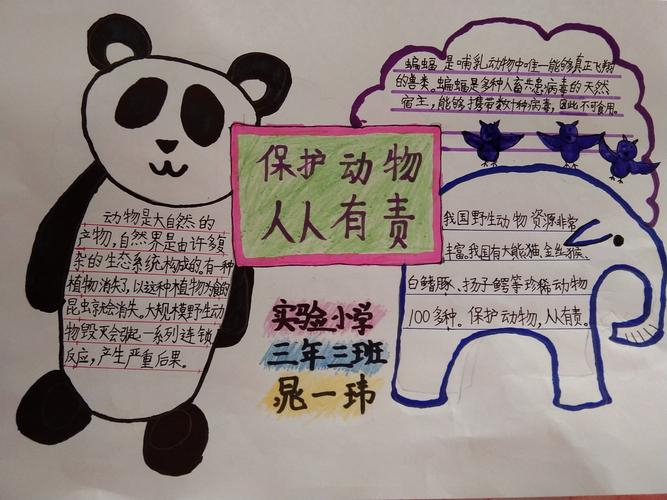 保护动物
人人有责
动物是大自然的
产物,自然界是由许多复
杂的生态系统构成的。有一种
植物消失了,以这种植物为食的
昆虫就会消失。大规模野生动
物毁灭会引起一系列连锁
反应,产生严重后果。
蝙蝠是哺乳动物中唯一能够真正飞翔
的兽类。蝙蝠是多种人畜共患病毒的天然
宿主,能够携带数十种病毒,因此不可食用。
我国野生动物资源非常
丰富。我国有大熊猫、金丝猴、
白鳍豚、扬子鳄等珍稀动物
100多种。保护动物,人人有责。
实验小学
三年三班
晁一玮